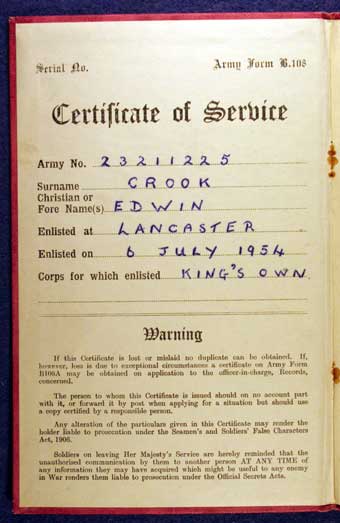 Serial No. Army Form B.108
Certificate of Service
Army No. 23211225
Surname CROOK
Christian or
Fore Name(s) EDWIN
Enlisted at LANCASTER
Enlisted on 6 JULY 1954
Corps for which enlisted KING'S OWN
Warning
If this Certificate is lost or mislaid no duplicate can be obtained. If,
however, loss is due to exceptional circumstances a certificate on Army Form
B108A may be obtained on application to the officer-in-charge, Records,
concerned.
The person to whom this Certificate is issued should on no account part
with it, or forward it by post when applying for a situation but should use
a copy certified by a responsible person.
Any alteration of the particulars given in this Certificate may render the
holder liable to prosecution under the Seamen's and Soldiers' False Characters
Act, 1906.
Soldiers on leaving Her Majesty's Service are hereby reminded that the
unauthorised communication by them to another person AT ANY TIME of
any information they may have acquired which might be useful to any enemy
in War renders them liable to prosecution under the Official Secrets Acts.